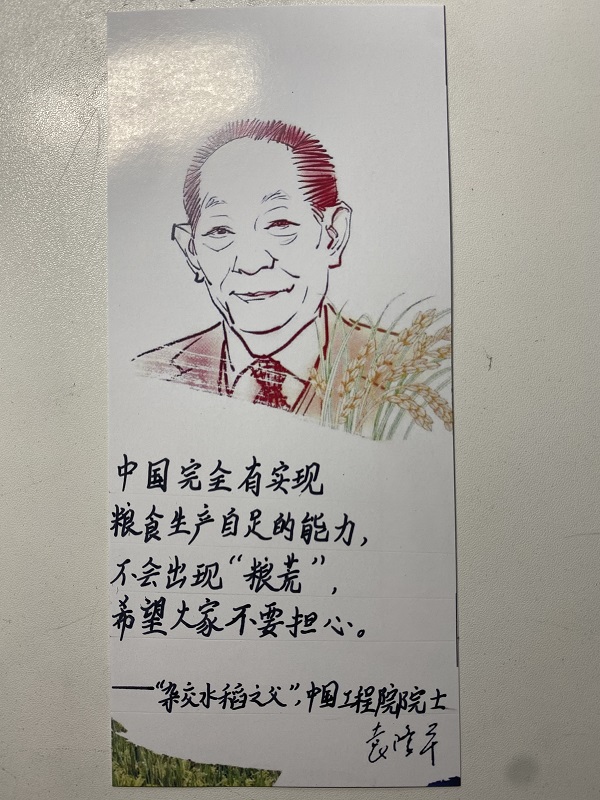 中国完全有实现
粮食生产自足的能力，
不会出现“粮荒”，
希望大家不要担心。
——“杂交水稻之父”，中国工程院院士
袁隆平